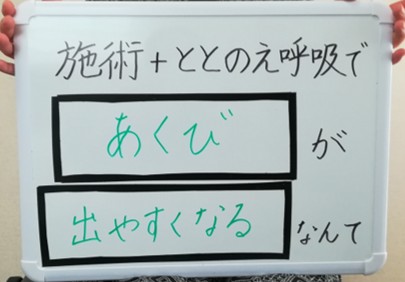 施術+ととのえ呼吸で
あくびが
出やすくなるなんて